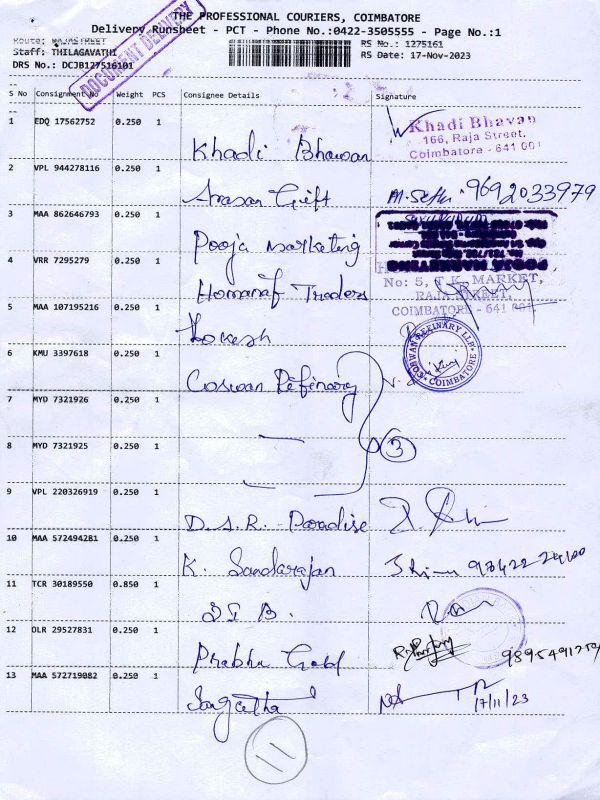 THE PROFESSIONAL COURIERS, COIMBATORE
Delivery Runsheet - PCT - Phone No.:0422-3505555 - Page No.:1
Route: RAJASTREET
Staff: THILAGAVATHI
RS No.: 1275161
DRS No.: DCJB127516101
RS Date: 17-Nov-2023
DOCUMENT DELIVERY
S No Consignment No Weight PCS Consignee Details Signature
1 EDQ 17562752 0.250 1 Khadi Bhawan
Khadi Bhavan
166, Raja Street,
Coimbatore - 641 001
2 VPL 944278116 0.250 1 Arasan Gift 9692033979
3 MAA 862646793 0.250 1 Pooja Marketing
POOJA MARKETING
4 VRR 7295279 0.250 1 Traders
No: 5, T.K. MARKET,
RAJA STREET,
COIMBATORE - 641 001
5 MAA 107195216 0.250 1 Lokesh
6 KMU 3397618 0.250 1 Refinary
REFINARY LLP
COIMBATORE
7 MYD 7321926 0.250 1
8 MYD 7321925 0.250 1
3
9 VPL 220326919 0.250 1 D.S.R. Paradise
10 MAA 572494281 0.250 1 K. Sandarajan
11 TCR 30189550 0.850 1
12 OLR 29527831 0.250 1 Prabhu Gold
13 MAA 572719082 0.250 1 Sangeetha
17/11/23
11